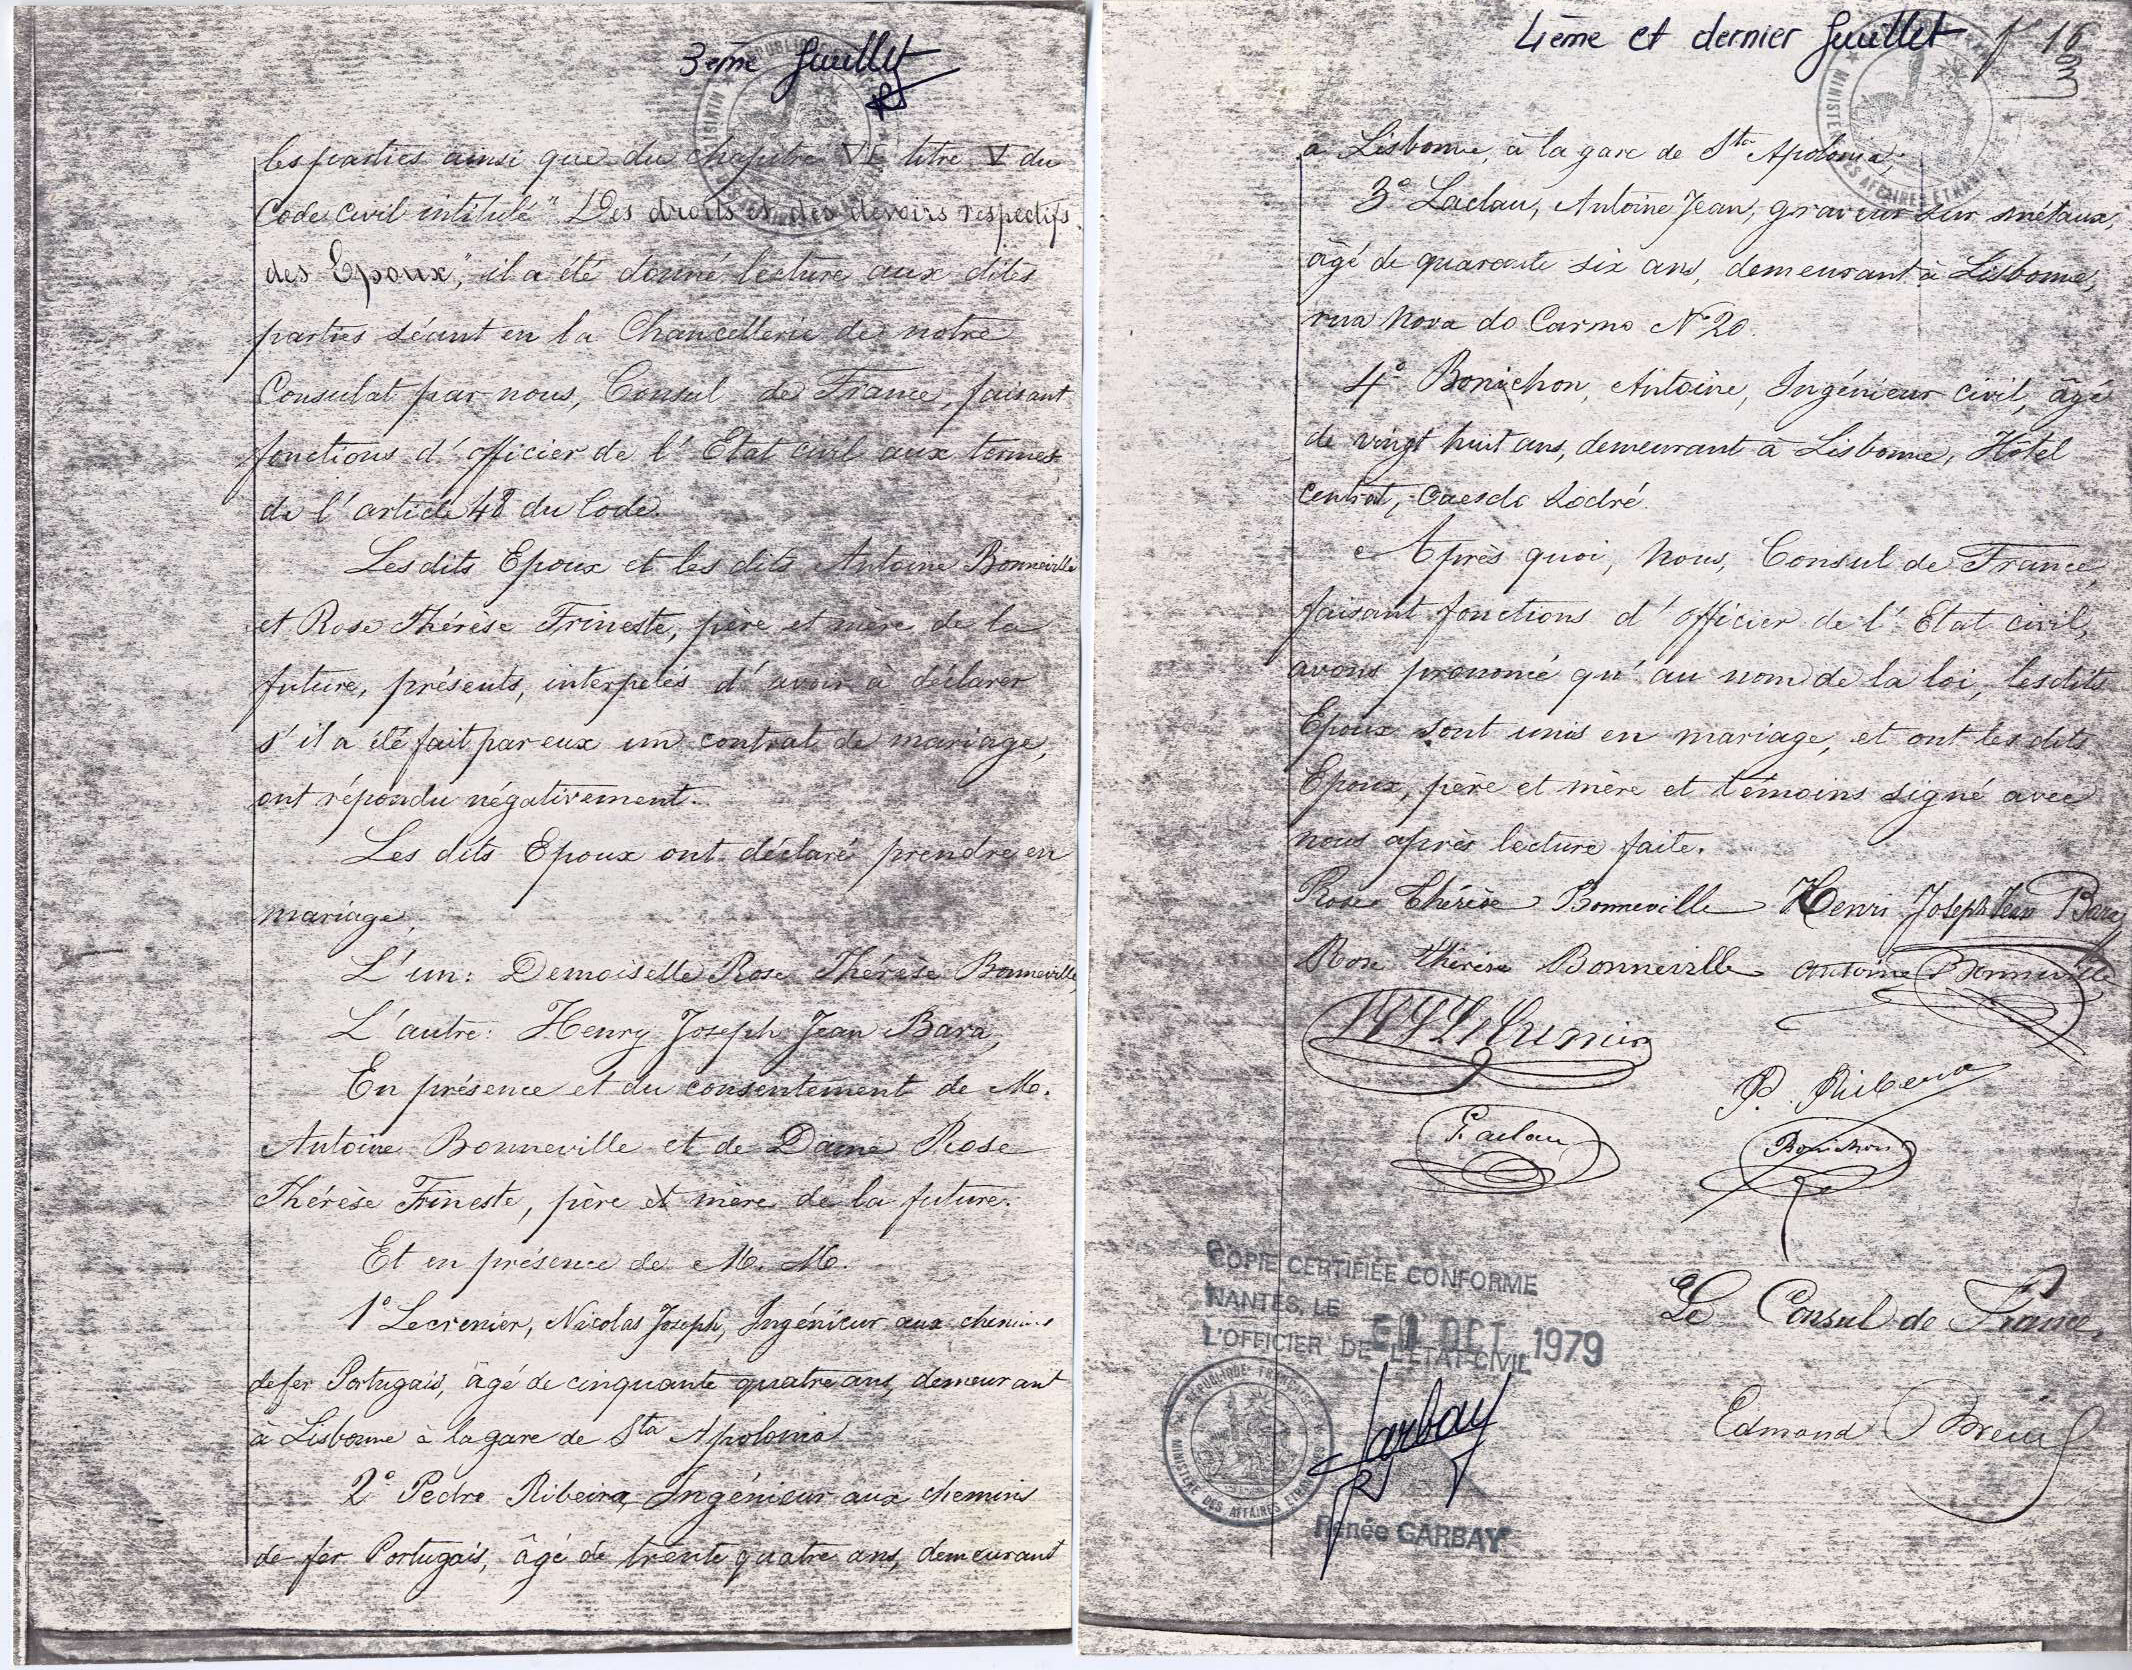 3ème feuillet
les parties ainsi que du chapitre VI titre V du
Code Civil intitulé "Des droits et des devoirs respectifs
des Epoux", il a été donné lecture aux dites
parties séant en la Chancellerie de notre
Consulat par nous, Consul de France, faisant
fonctions d'officier de l'Etat civil aux termes
de l'article 48 du Code.
Les dits Epoux et les dits Antoine Bonneville
et Rose Thérèse Frineste, père et mère de la
future, présents, interpelés d'avoir à déclarer
s'il a été fait par eux un contrat de mariage,
ont répondu négativement.
Les dits Epoux ont déclaré prendre en
mariage,
L'un: Demoiselle Rose Thérèse Bonneville
L'autre: Henry Joseph Jean Bara,
En présence et du consentement de M.
Antoine Bonneville et de Dame Rose
Thérèse Frineste, père et mère de la future.
Et en présence de M. M.
1° Lecrenier, Nicolas Joseph, Ingénieur aux chemins
de fer Portugais, âgé de cinquante quatre ans, demeurant
à Lisbonne à la gare de Sta Apolonia
2° Pedro Ribeira, Ingénieur aux chemins
de fer Portugais, âgé de trente quatre ans, demeurant
4ème et dernier feuillet
f° 16
à Lisbonne, à la gare de Sta Apolonia,
3° Laclau, Antoine Jean, graveur sur métaux,
âgé de quarante six ans, demeurant à Lisbonne,
rua nova do Carmo N° 20.
4° Bonichon, Antoine, Ingénieur civil, âgé
de vingt huit ans, demeurant à Lisbonne, Hôtel
central, Caes do Sodré.
Après quoi, nous, Consul de France,
faisant fonctions d'officier de l'Etat civil,
avons prononcé qu'au nom de la loi, les dits
Epoux sont unis en mariage, et ont les dits
Epoux, père et mère et témoins signé avec
nous après lecture faite.
Rose Thérèse Bonneville Henri Joseph Jean Bara
Rose thérèse Bonneville antoine Bonneville
P. Ribeira
Laclau Bonichon
COPIE CERTIFIÉE CONFORME
NANTES, LE OCT 1979
L'OFFICIER DE L'ETAT-CIVIL
Le Consul de France,
Garbay
Edmond Breuil
Renée GARBAY
RÉPUBLIQUE FRANÇAISE
MINISTÈRE DES AFFAIRES ETRANGÈRES